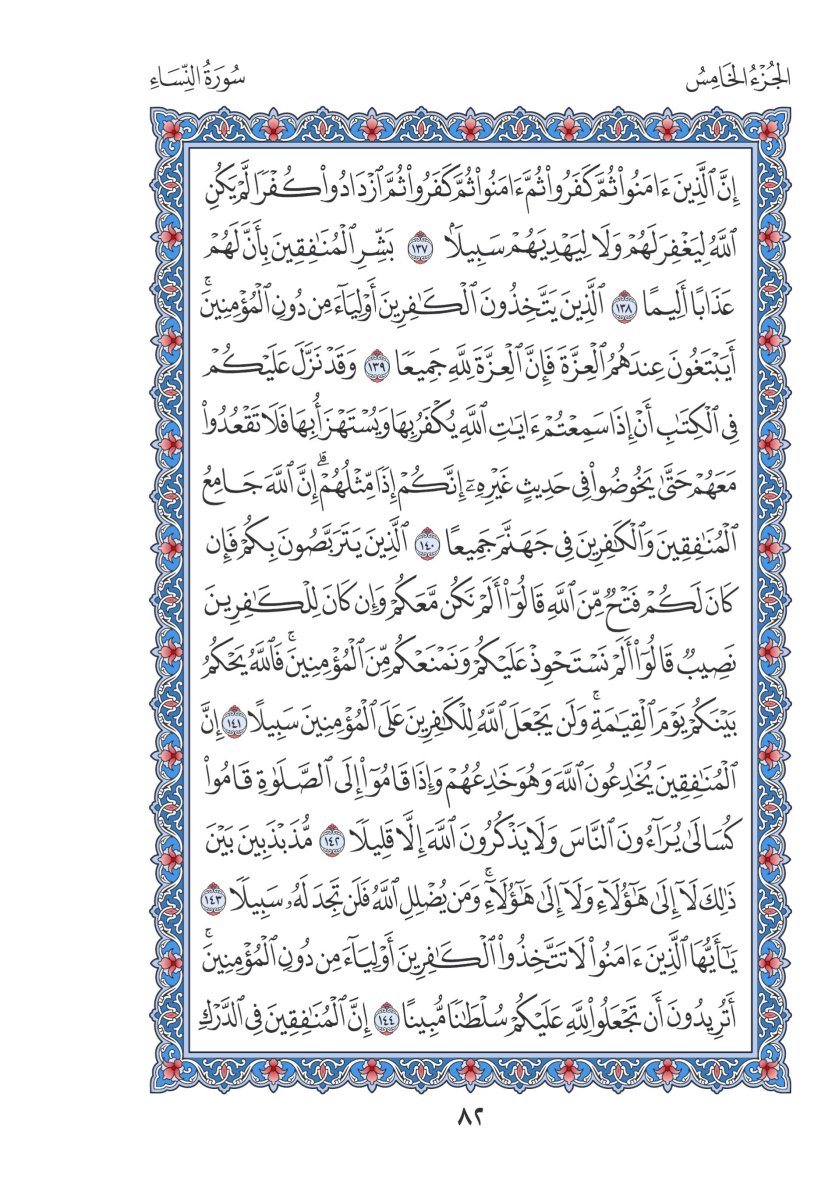 الجُزْءُ الخَامِسُ
سُورَةُ النِّسَاءِ
إِنَّ ٱلَّذِينَ ءَامَنُوا۟ ثُمَّ كَفَرُوا۟ ثُمَّ ءَامَنُوا۟ ثُمَّ كَفَرُوا۟ ثُمَّ ٱزْدَادُوا۟ كُفْرًا لَّمْ يَكُنِ
ٱللَّهُ لِيَغْفِرَ لَهُمْ وَلَا لِيَهْدِيَهُمْ سَبِيلًۢا ١٣٧ بَشِّرِ ٱلْمُنَٰفِقِينَ بِأَنَّ لَهُمْ
عَذَابًا أَلِيمًا ١٣٨ ٱلَّذِينَ يَتَّخِذُونَ ٱلْكَٰفِرِينَ أَوْلِيَآءَ مِن دُونِ ٱلْمُؤْمِنِينَ ۚ
أَيَبْتَغُونَ عِندَهُمُ ٱلْعِزَّةَ فَإِنَّ ٱلْعِزَّةَ لِلَّهِ جَمِيعًا ١٣٩ وَقَدْ نَزَّلَ عَلَيْكُمْ
فِى ٱلْكِتَٰبِ أَنْ إِذَا سَمِعْتُمْ ءَايَٰتِ ٱللَّهِ يُكْفَرُ بِهَا وَيُسْتَهْزَأُ بِهَا فَلَا تَقْعُدُوا۟
مَعَهُمْ حَتَّىٰ يَخُوضُوا۟ فِى حَدِيثٍ غَيْرِهِۦٓ ۚ إِنَّكُمْ إِذًا مِّثْلُهُمْ ۗ إِنَّ ٱللَّهَ جَامِعُ
ٱلْمُنَٰفِقِينَ وَٱلْكَٰفِرِينَ فِى جَهَنَّمَ جَمِيعًا ١٤٠ ٱلَّذِينَ يَتَرَبَّصُونَ بِكُمْ فَإِن
كَانَ لَكُمْ فَتْحٌ مِّنَ ٱللَّهِ قَالُوٓا۟ أَلَمْ نَكُن مَّعَكُمْ وَإِن كَانَ لِلْكَٰفِرِينَ
نَصِيبٌ قَالُوٓا۟ أَلَمْ نَسْتَحْوِذْ عَلَيْكُمْ وَنَمْنَعْكُم مِّنَ ٱلْمُؤْمِنِينَ ۚ فَٱللَّهُ يَحْكُمُ
بَيْنَكُمْ يَوْمَ ٱلْقِيَٰمَةِ ۗ وَلَن يَجْعَلَ ٱللَّهُ لِلْكَٰفِرِينَ عَلَى ٱلْمُؤْمِنِينَ سَبِيلًا ١٤١ إِنَّ
ٱلْمُنَٰفِقِينَ يُخَٰدِعُونَ ٱللَّهَ وَهُوَ خَٰدِعُهُمْ وَإِذَا قَامُوٓا۟ إِلَى ٱلصَّلَوٰةِ قَامُوا۟
كُسَالَىٰ يُرَآءُونَ ٱلنَّاسَ وَلَا يَذْكُرُونَ ٱللَّهَ إِلَّا قَلِيلًا ١٤٢ مُّذَبْذَبِينَ بَيْنَ
ذَٰلِكَ لَآ إِلَىٰ هَٰٓؤُلَآءِ وَلَآ إِلَىٰ هَٰٓؤُلَآءِ ۚ وَمَن يُضْلِلِ ٱللَّهُ فَلَن تَجِدَ لَهُۥ سَبِيلًا ١٤٣
يَٰٓأَيُّهَا ٱلَّذِينَ ءَامَنُوا۟ لَا تَتَّخِذُوا۟ ٱلْكَٰفِرِينَ أَوْلِيَآءَ مِن دُونِ ٱلْمُؤْمِنِينَ ۚ
أَتُرِيدُونَ أَن تَجْعَلُوا۟ لِلَّهِ عَلَيْكُمْ سُلْطَٰنًا مُّبِينًا ١٤٤ إِنَّ ٱلْمُنَٰفِقِينَ فِى ٱلدَّرْكِ
٨٢